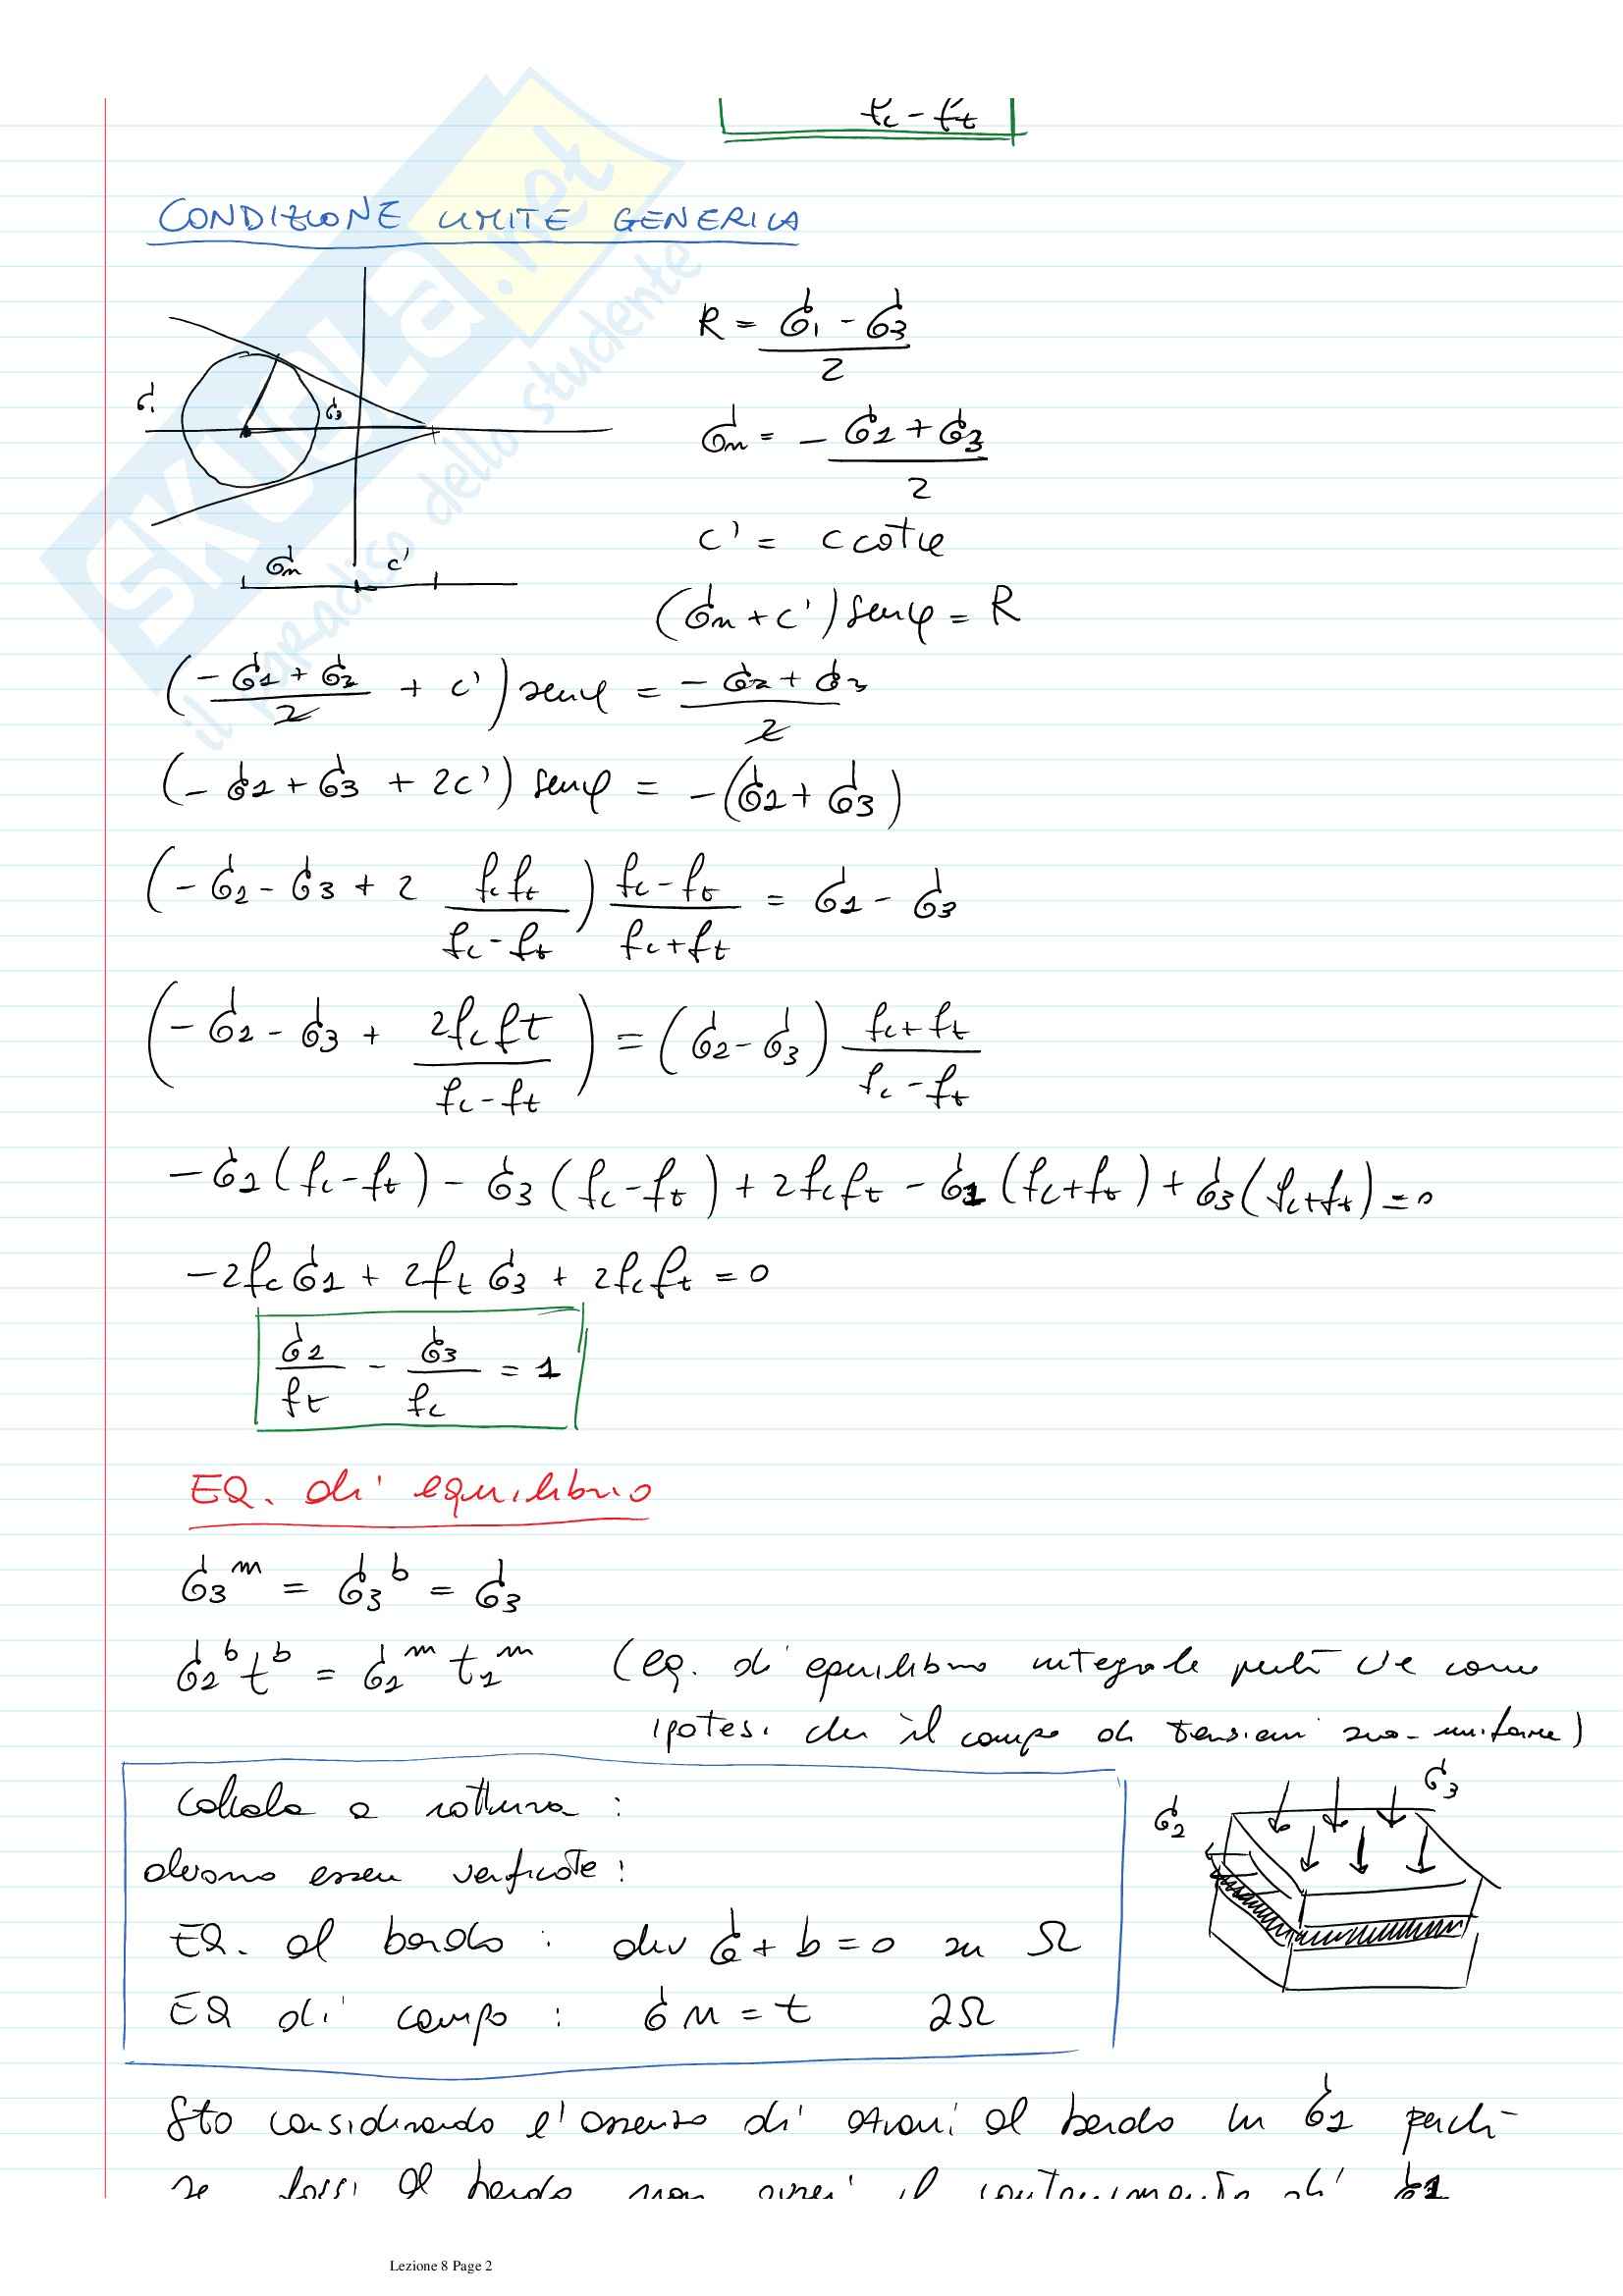 fc - ft
CONDIZIONE LIMITE GENERICA
R = (σ1 - σ3)/2
σ1 σ3
σm = - (σ1 + σ3)/2
c' = c cotφ
σm c'
(σm + c') senφ = R
((-σ1 + σ3)/2 + c') senφ = (-σ1 + σ3)/2
(-σ1 + σ3 + 2c') senφ = -(σ1 + σ3)
(-σ1 - σ3 + 2 (fc ft)/(fc - ft)) (fc - ft)/(fc + ft) = σ1 - σ3
(-σ1 - σ3 + (2 fc ft)/(fc - ft)) = (σ1 - σ3) (fc + ft)/(fc - ft)
-σ1 (fc - ft) - σ3 (fc - ft) + 2 fc ft - σ1 (fc + ft) + σ3 (fc + ft) = 0
-2 fc σ1 + 2 ft σ3 + 2 fc ft = 0
σ1/ft - σ3/fc = 1
EQ. di equilibrio
σ3^m = σ3^b = σ3
σ1^b t^b = σ1^m t1^m (eq. di equilibrio integrale come
ipotesi che il campo di tensioni sia uniforme)
Calcolo a rottura :
σ2 σ3
devono essere verificate :
EQ. al bordo : div σ + b = 0 su Ω
EQ di campo : σ n = t ∂Ω
Sto considerando l'assenza di azioni al bordo in σ1 perché
se fossi al bordo non avrei il contenimento di σ1
SKUOLA.net
il paradiso dello studente
Lezione 8 Page 2